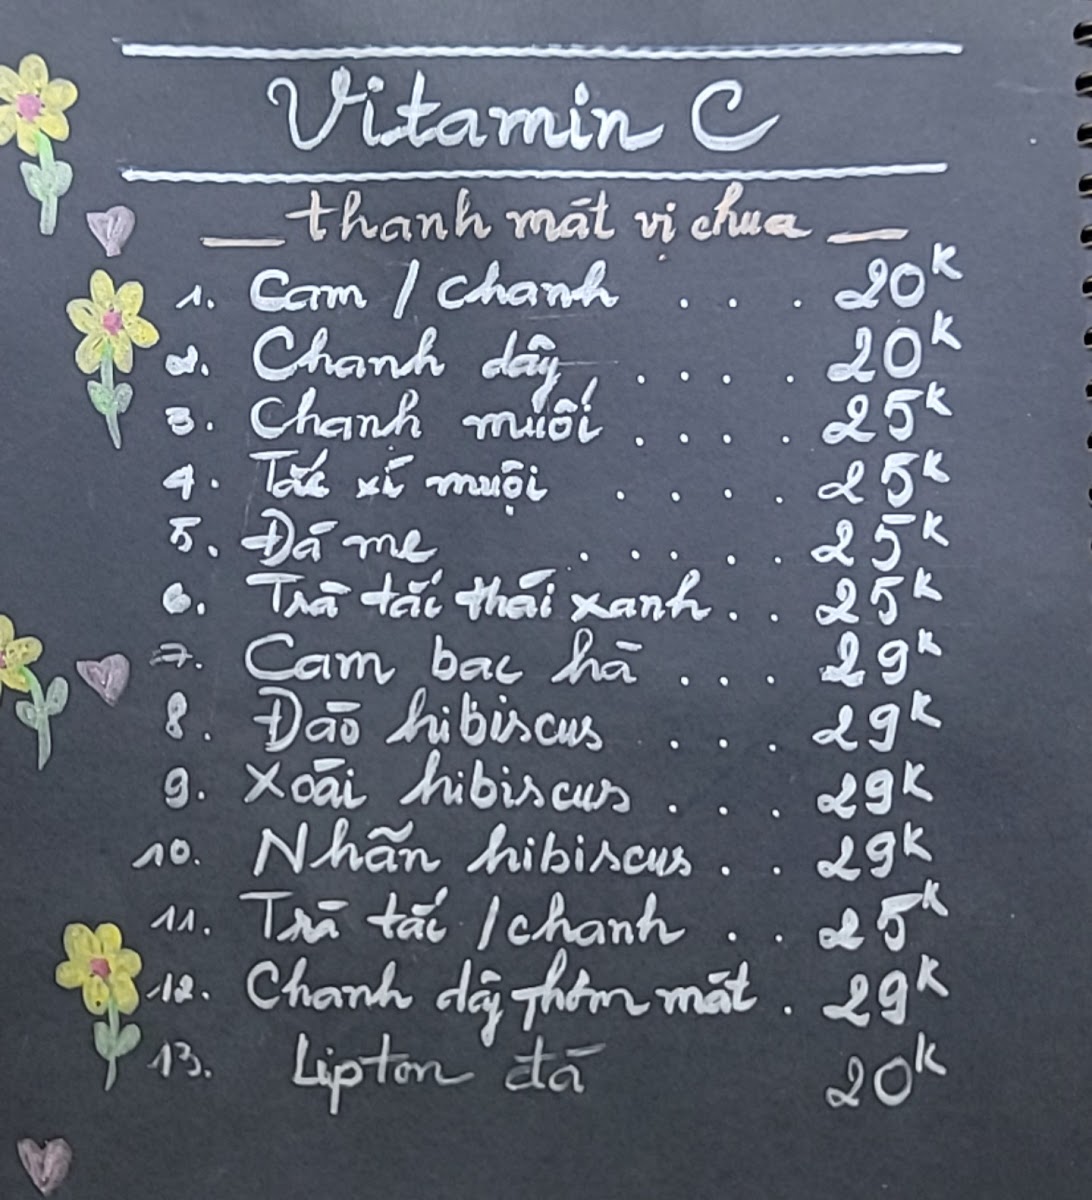 Vitamin C
thanh mát vị chua
1. Cam / Chanh . . . 20K
2. Chanh dây . . . . 20K
3. Chanh muối . . . . 25K
4. Tắc xí muội . . . . 25K
5. Đá me . . . . . 25K
6. Trà tắc thái xanh . . 25K
7. Cam bạc hà . . . 29K
8. Đào hibiscus . . . 29K
9. Xoài hibiscus . . . 29K
10. Nhãn hibiscus . . 29K
11. Trà tắc / chanh . . 25K
12. Chanh dây thơm mát . 29K
13. Lipton đá 20K